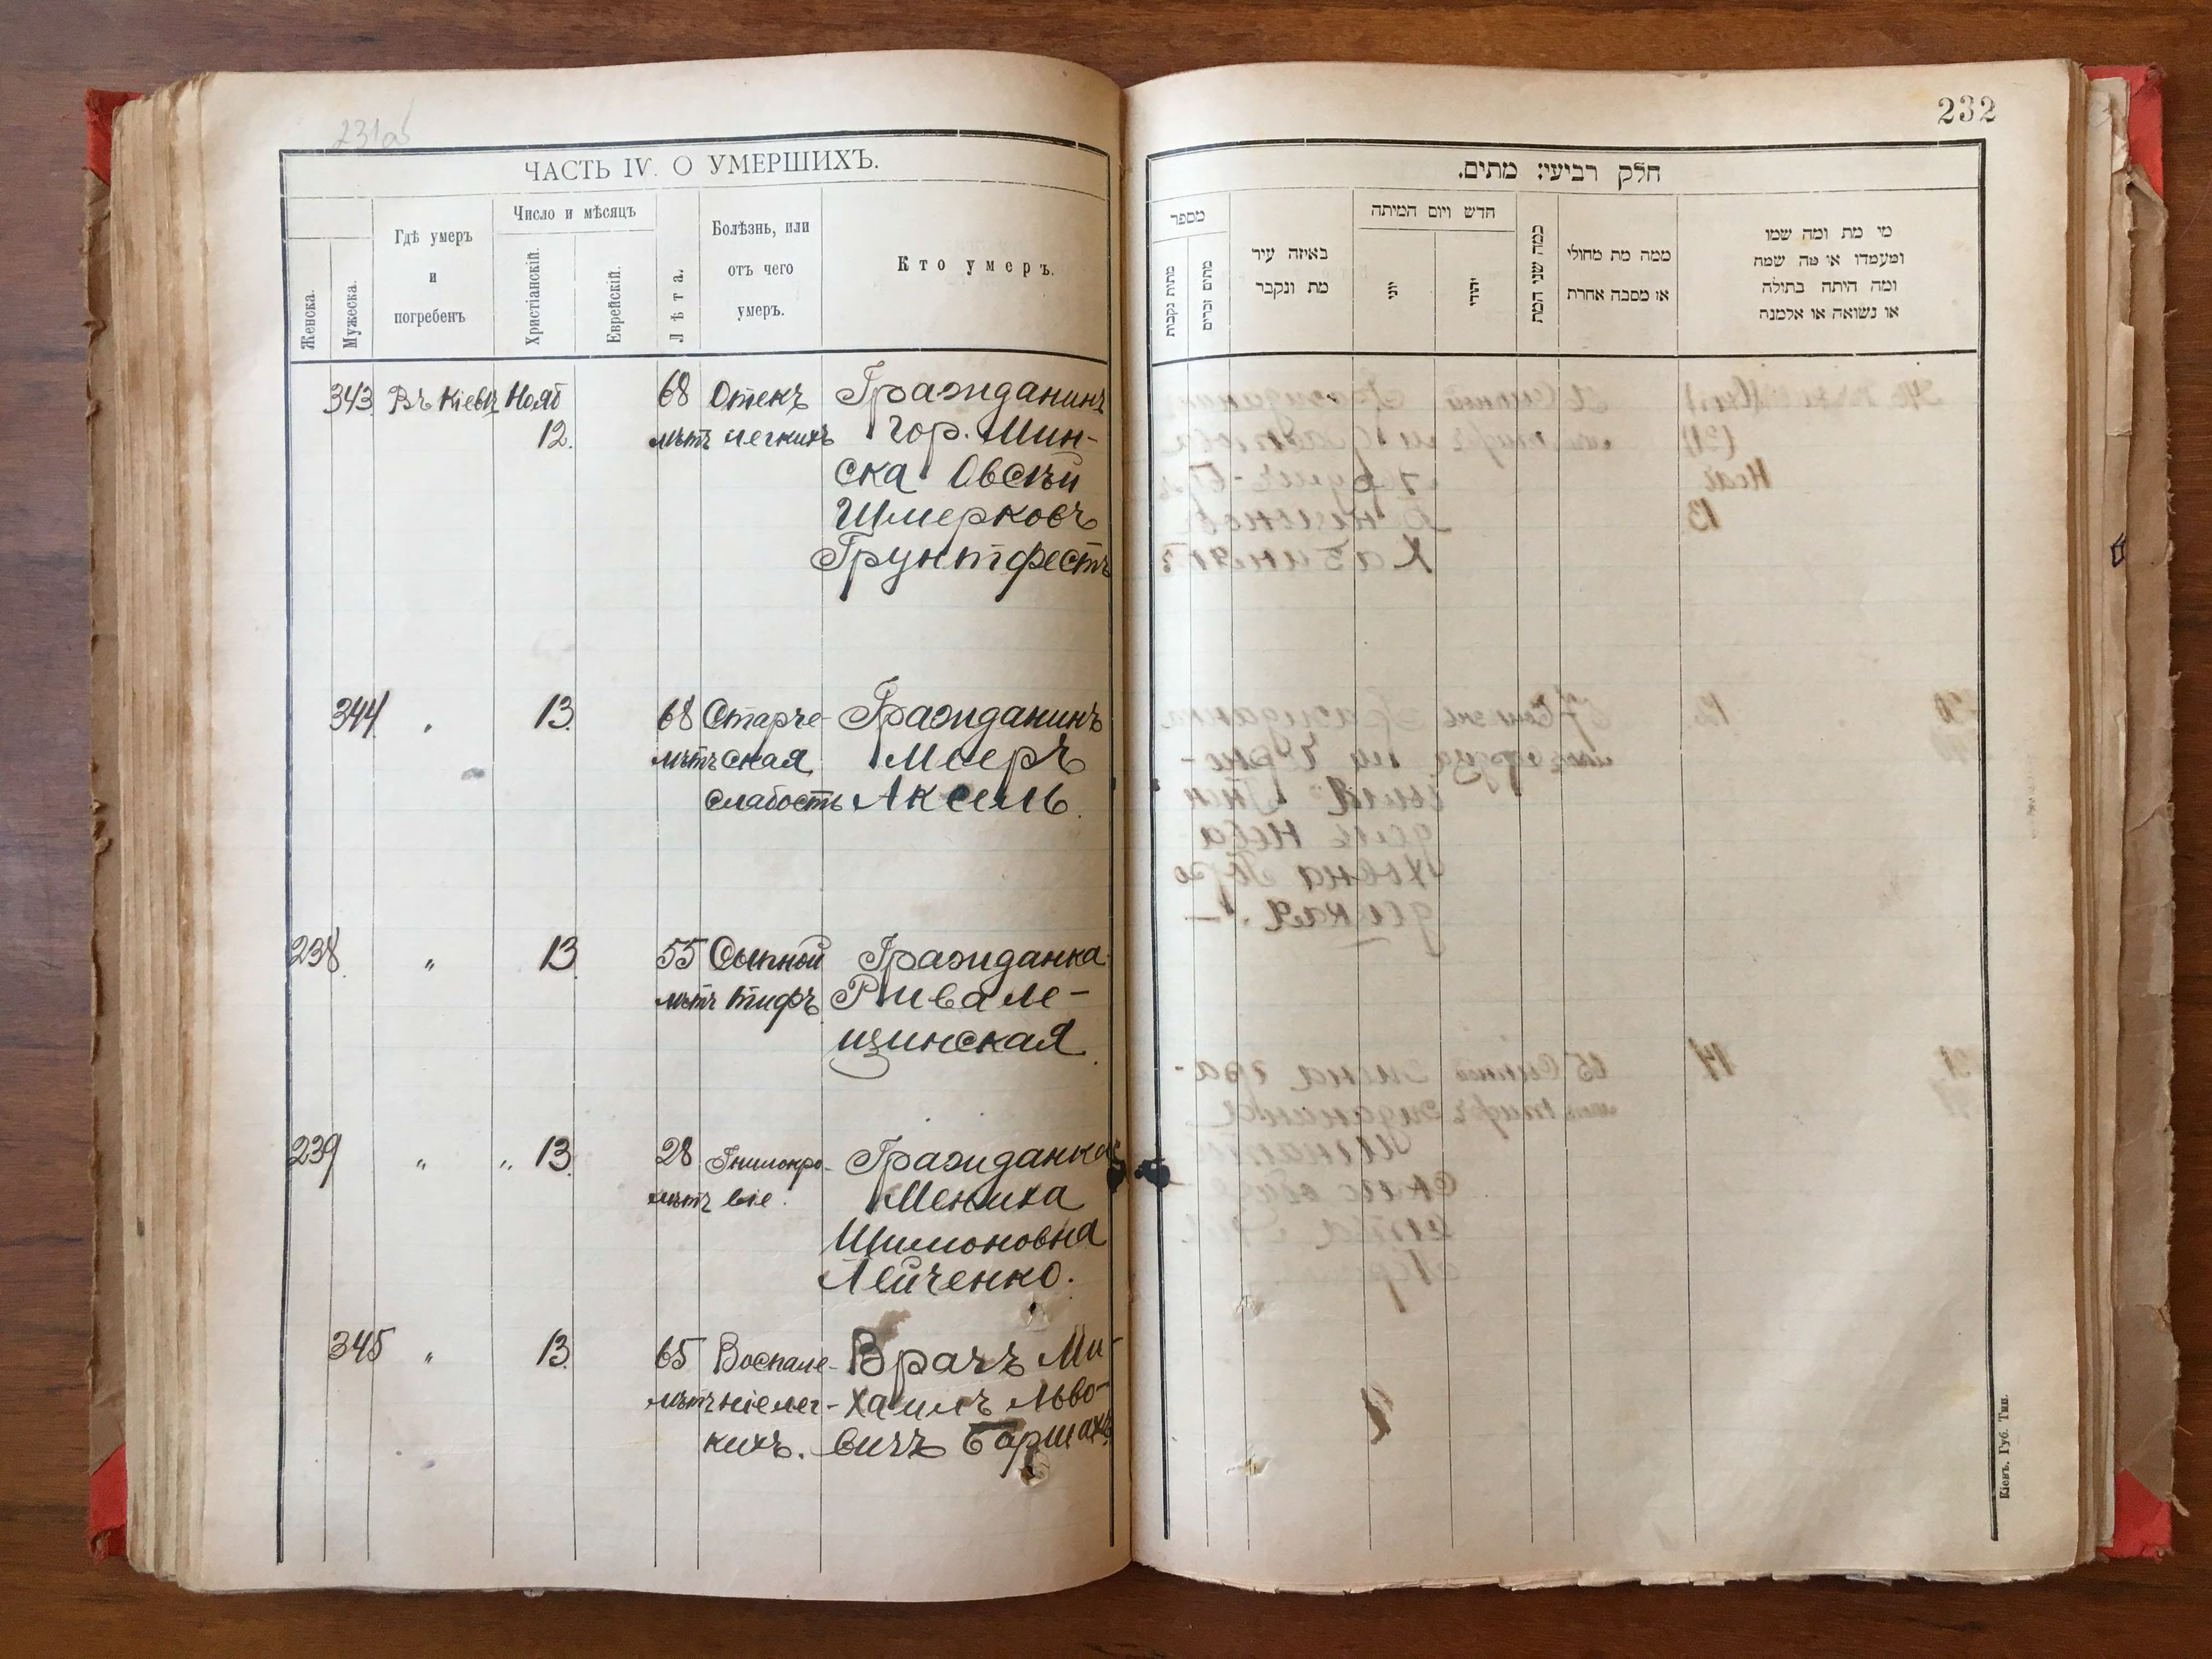 231об
ЧАСТЬ IV. О УМЕРШИХЪ.
Женска.
Мужеска.
Гдѣ умеръ
и
погребенъ
Число и мѣсяцъ
Христіанскій.
Еврейскій.
Лѣта.
Болѣзнь, или
отъ чего
умеръ.
Кто умеръ.
343 Въ Кіевѣ Нояб 68 Отекъ Гражданинъ
12. лѣтъ легкихъ гор. Мин-
ска Овсѣй
Шмерковъ
Грунтфестъ
344 " 13. 68 Старче- Гражданинъ
лѣтъ ская Мееръ
слабость Аксель.
238 " 13 55 Сыпной Гражданка
лѣтъ тифъ Рива Ле-
щинская
239 " " 13. 28 Гнилокро- Гражданка
лѣтъ віе. Мениха
Шимоновна
Лейченко.
345 " 13. 65 Воспале- Врачъ Ми-
лѣтъ ніе лег- хаилъ Льво-
кихъ. вичъ Баршахъ
232
חלק רביעי: מתים.
מספר
מתות נקבות
מתים זכרים
באיזה עיר
מת ונקבר
חדש ויום המיתה
יוני
יהודי
כמה שני המת
ממה מת מחולי
או מסבה אחרת
מי מת ומה שמו
ומעמדו או מה שמה
ומה היתה בתולה
או נשואה או אלמנה
Кіевъ, Губ. Тип.